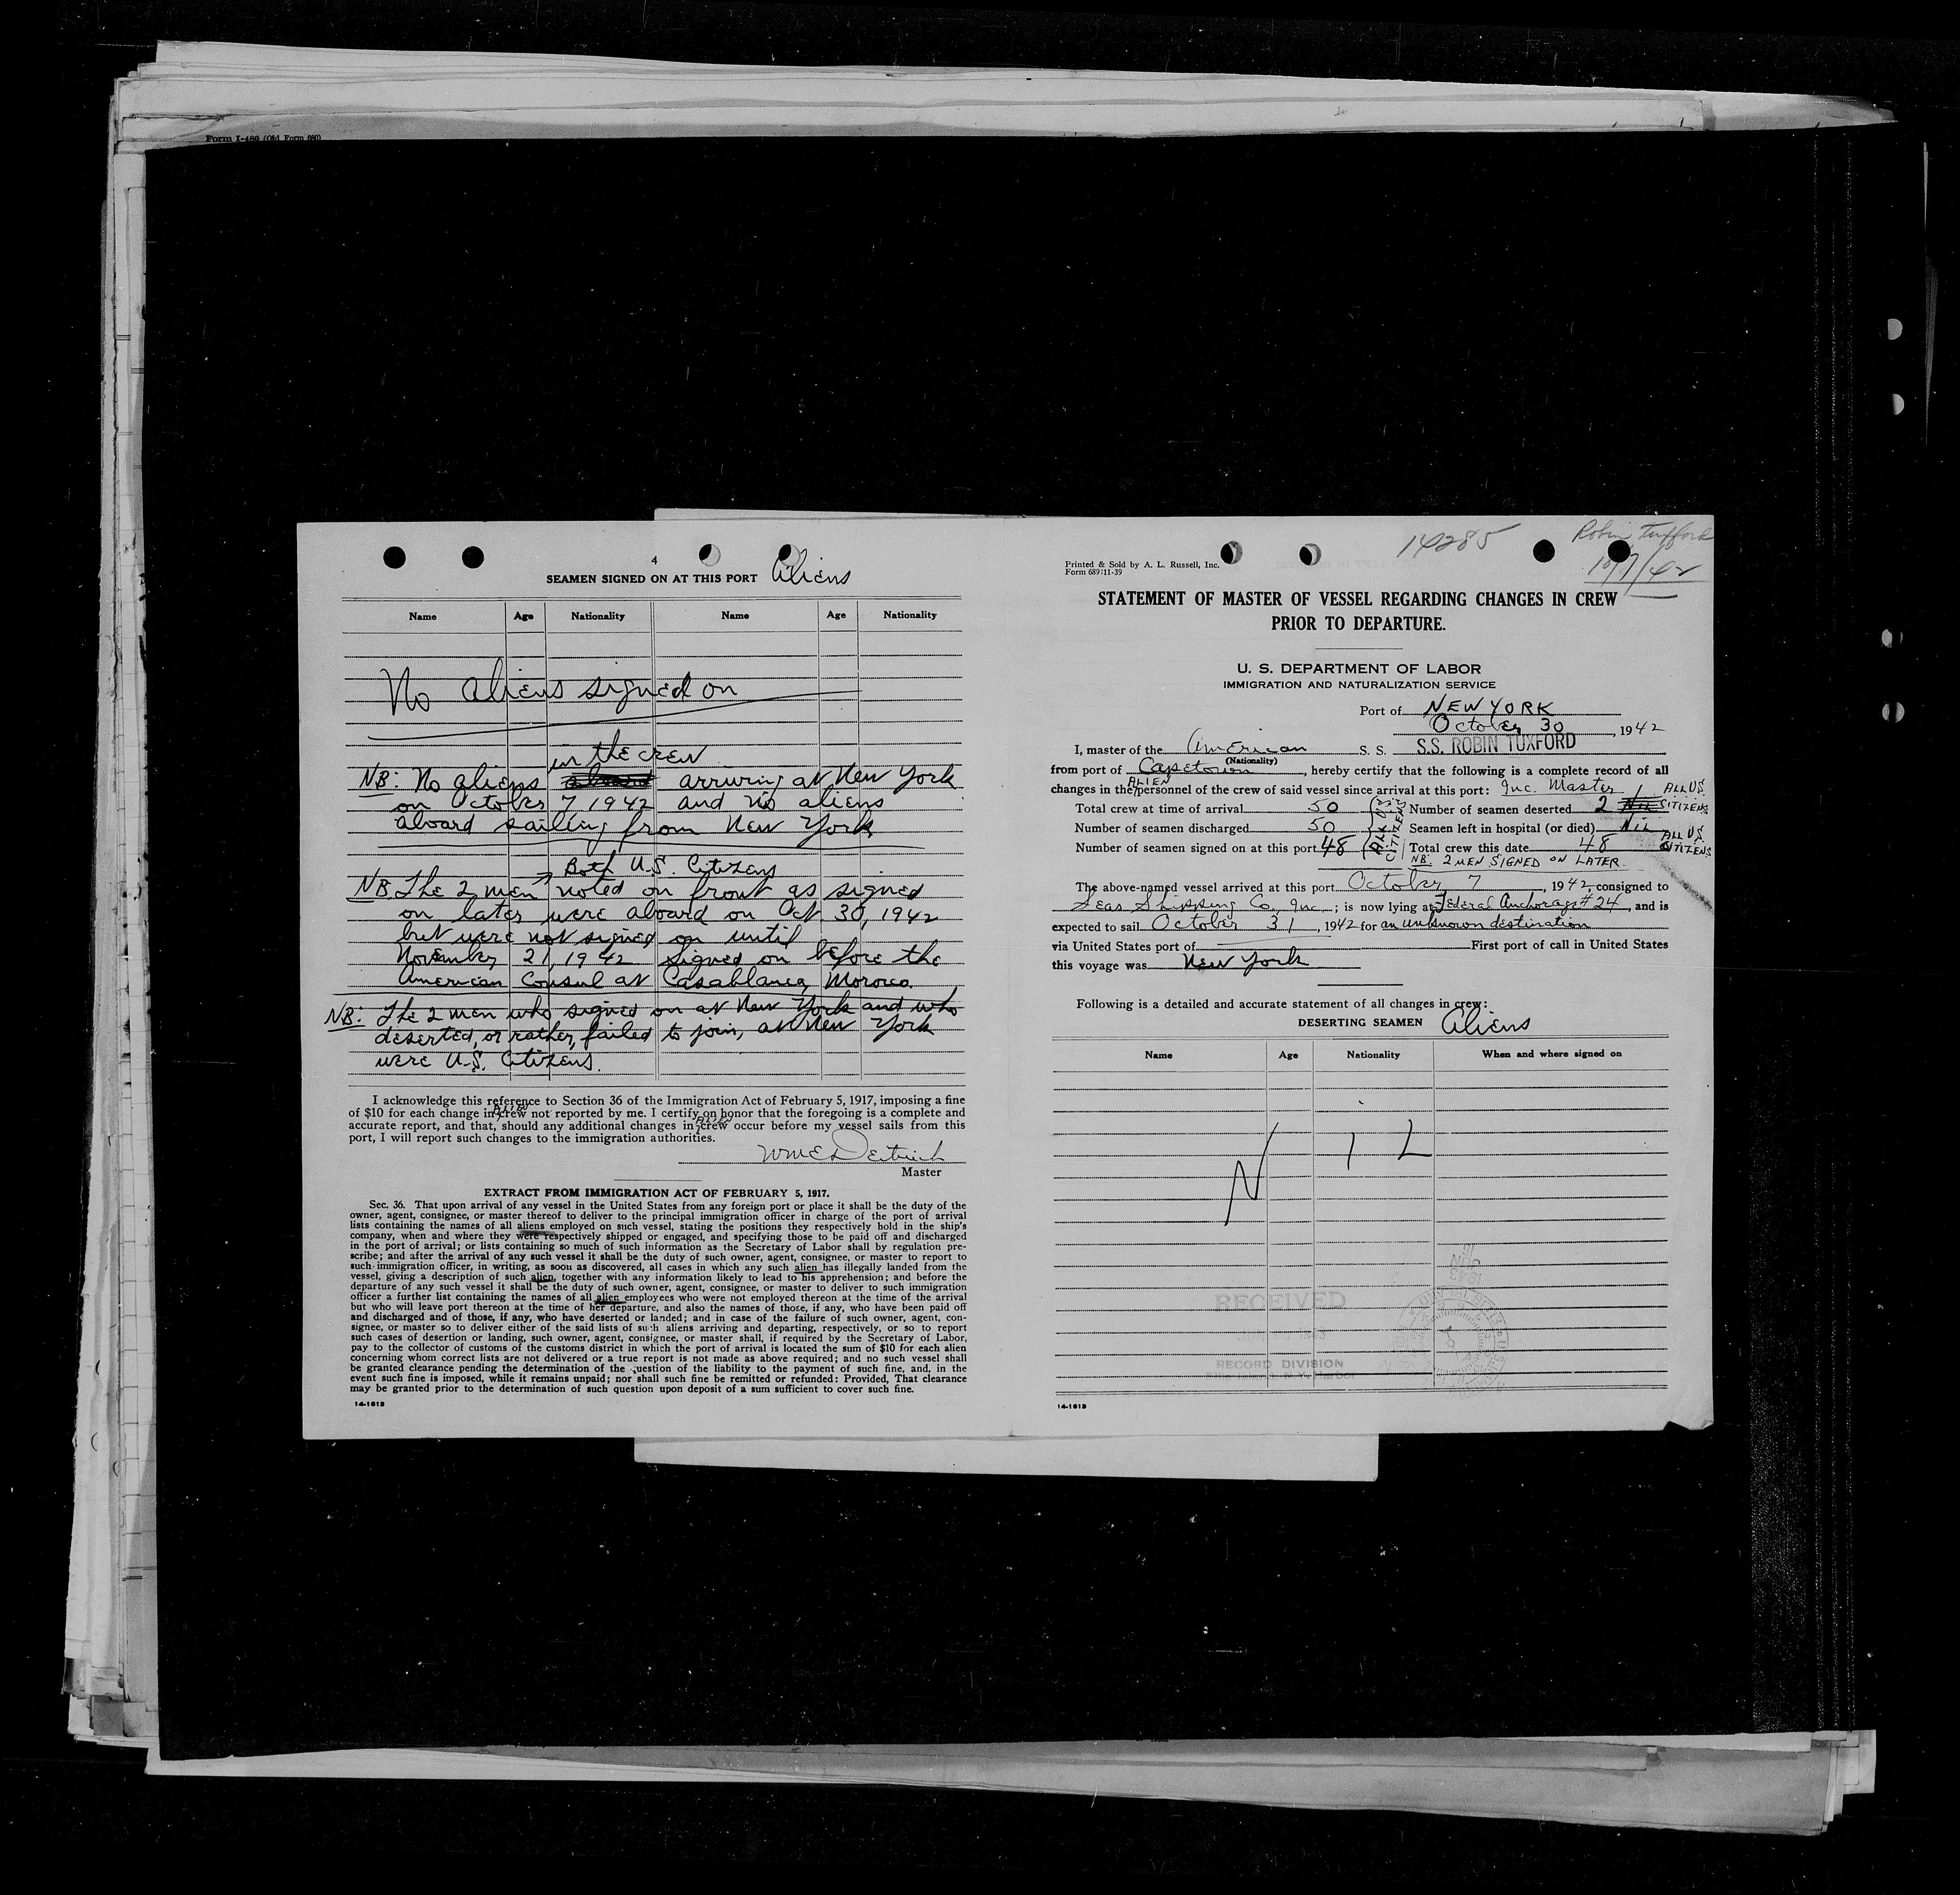 Form I-480 (Old Form 680)
4
SEAMEN SIGNED ON AT THIS PORT Aliens
Name Age Nationality Name Age Nationality
No aliens signed on
in the crew
NB: No aliens aboard arriving at New York
on October 7 1942 and no aliens
aboard sailing from New York
Both U.S. Citizens
NB The 2 men noted on front as signed
on later were aboard on Oct 30, 1942
but were not signed on until
November 21, 1942 signed on before the
American Consul at Casablanca, Morocco.
NB: The 2 men who signed on at New York and who
deserted, or rather, failed to join, at New York
were U.S. Citizens.
I acknowledge this reference to Section 36 of the Immigration Act of February 5, 1917, imposing a fine
of $10 for each change in alien crew not reported by me. I certify on honor that the foregoing is a complete and
accurate report, and that, should any additional changes in alien crew occur before my vessel sails from this
port, I will report such changes to the immigration authorities.
Wm E Deitrich
Master
EXTRACT FROM IMMIGRATION ACT OF FEBRUARY 5, 1917.
Sec. 36. That upon arrival of any vessel in the United States from any foreign port or place it shall be the duty of the
owner, agent, consignee, or master thereof to deliver to the principal immigration officer in charge of the port of arrival
lists containing the names of all aliens employed on such vessel, stating the positions they respectively hold in the ship's
company, when and where they were respectively shipped or engaged, and specifying those to be paid off and discharged
in the port of arrival; or lists containing so much of such information as the Secretary of Labor shall by regulation pre-
scribe; and after the arrival of any such vessel it shall be the duty of such owner, agent, consignee, or master to report to
such immigration officer, in writing, as soon as discovered, all cases in which any such alien has illegally landed from the
vessel, giving a description of such alien, together with any information likely to lead to his apprehension; and before the
departure of any such vessel it shall be the duty of such owner, agent, consignee, or master to deliver to such immigration
officer a further list containing the names of all alien employees who were not employed thereon at the time of the arrival
but who will leave port thereon at the time of her departure, and also the names of those, if any, who have been paid off
and discharged and of those, if any, who have deserted or landed; and in case of the failure of such owner, agent, con-
signee, or master so to deliver either of the said lists of such aliens arriving and departing, respectively, or so to report
such cases of desertion or landing, such owner, agent, consignee, or master shall, if required by the Secretary of Labor,
pay to the collector of customs of the customs district in which the port of arrival is located the sum of $10 for each alien
concerning whom correct lists are not delivered or a true report is not made as above required; and no such vessel shall
be granted clearance pending the determination of the question of the liability to the payment of such fine, and, in the
event such fine is imposed, while it remains unpaid; nor shall such fine be remitted or refunded: Provided, That clearance
may be granted prior to the determination of such question upon deposit of a sum sufficient to cover such fine.
14-1613
14285 Robin Tuxford
10/7/42
Printed & Sold by A. L. Russell, Inc.
Form 689:11-39
STATEMENT OF MASTER OF VESSEL REGARDING CHANGES IN CREW
PRIOR TO DEPARTURE.
U. S. DEPARTMENT OF LABOR
IMMIGRATION AND NATURALIZATION SERVICE
Port of NEW YORK
October 30, 1942
I, master of the American S. S. S.S. ROBIN TUXFORD
(Nationality)
from port of Capetown, hereby certify that the following is a complete record of all
changes in the ALIEN personnel of the crew of said vessel since arrival at this port: Inc. Master
Total crew at time of arrival 50 Number of seamen deserted 2 Nil ALL US. CITIZENS
Number of seamen discharged 50 ALL US CITIZENS Seamen left in hospital (or died) Nil
Number of seamen signed on at this port 48 Total crew this date 48 ALL US. CITIZENS
NB: 2 MEN SIGNED ON LATER
The above-named vessel arrived at this port October 7, 1942, consigned to
Seas Shipping Co. Inc; is now lying at Federal Anchorage #24, and is
expected to sail October 31, 1942 for an unknown destination
via United States port of First port of call in United States
this voyage was New York
Following is a detailed and accurate statement of all changes in crew:
DESERTING SEAMEN Aliens
Name Age Nationality When and where signed on
N I L
RECEIVED
RECORD DIVISION
14-1613